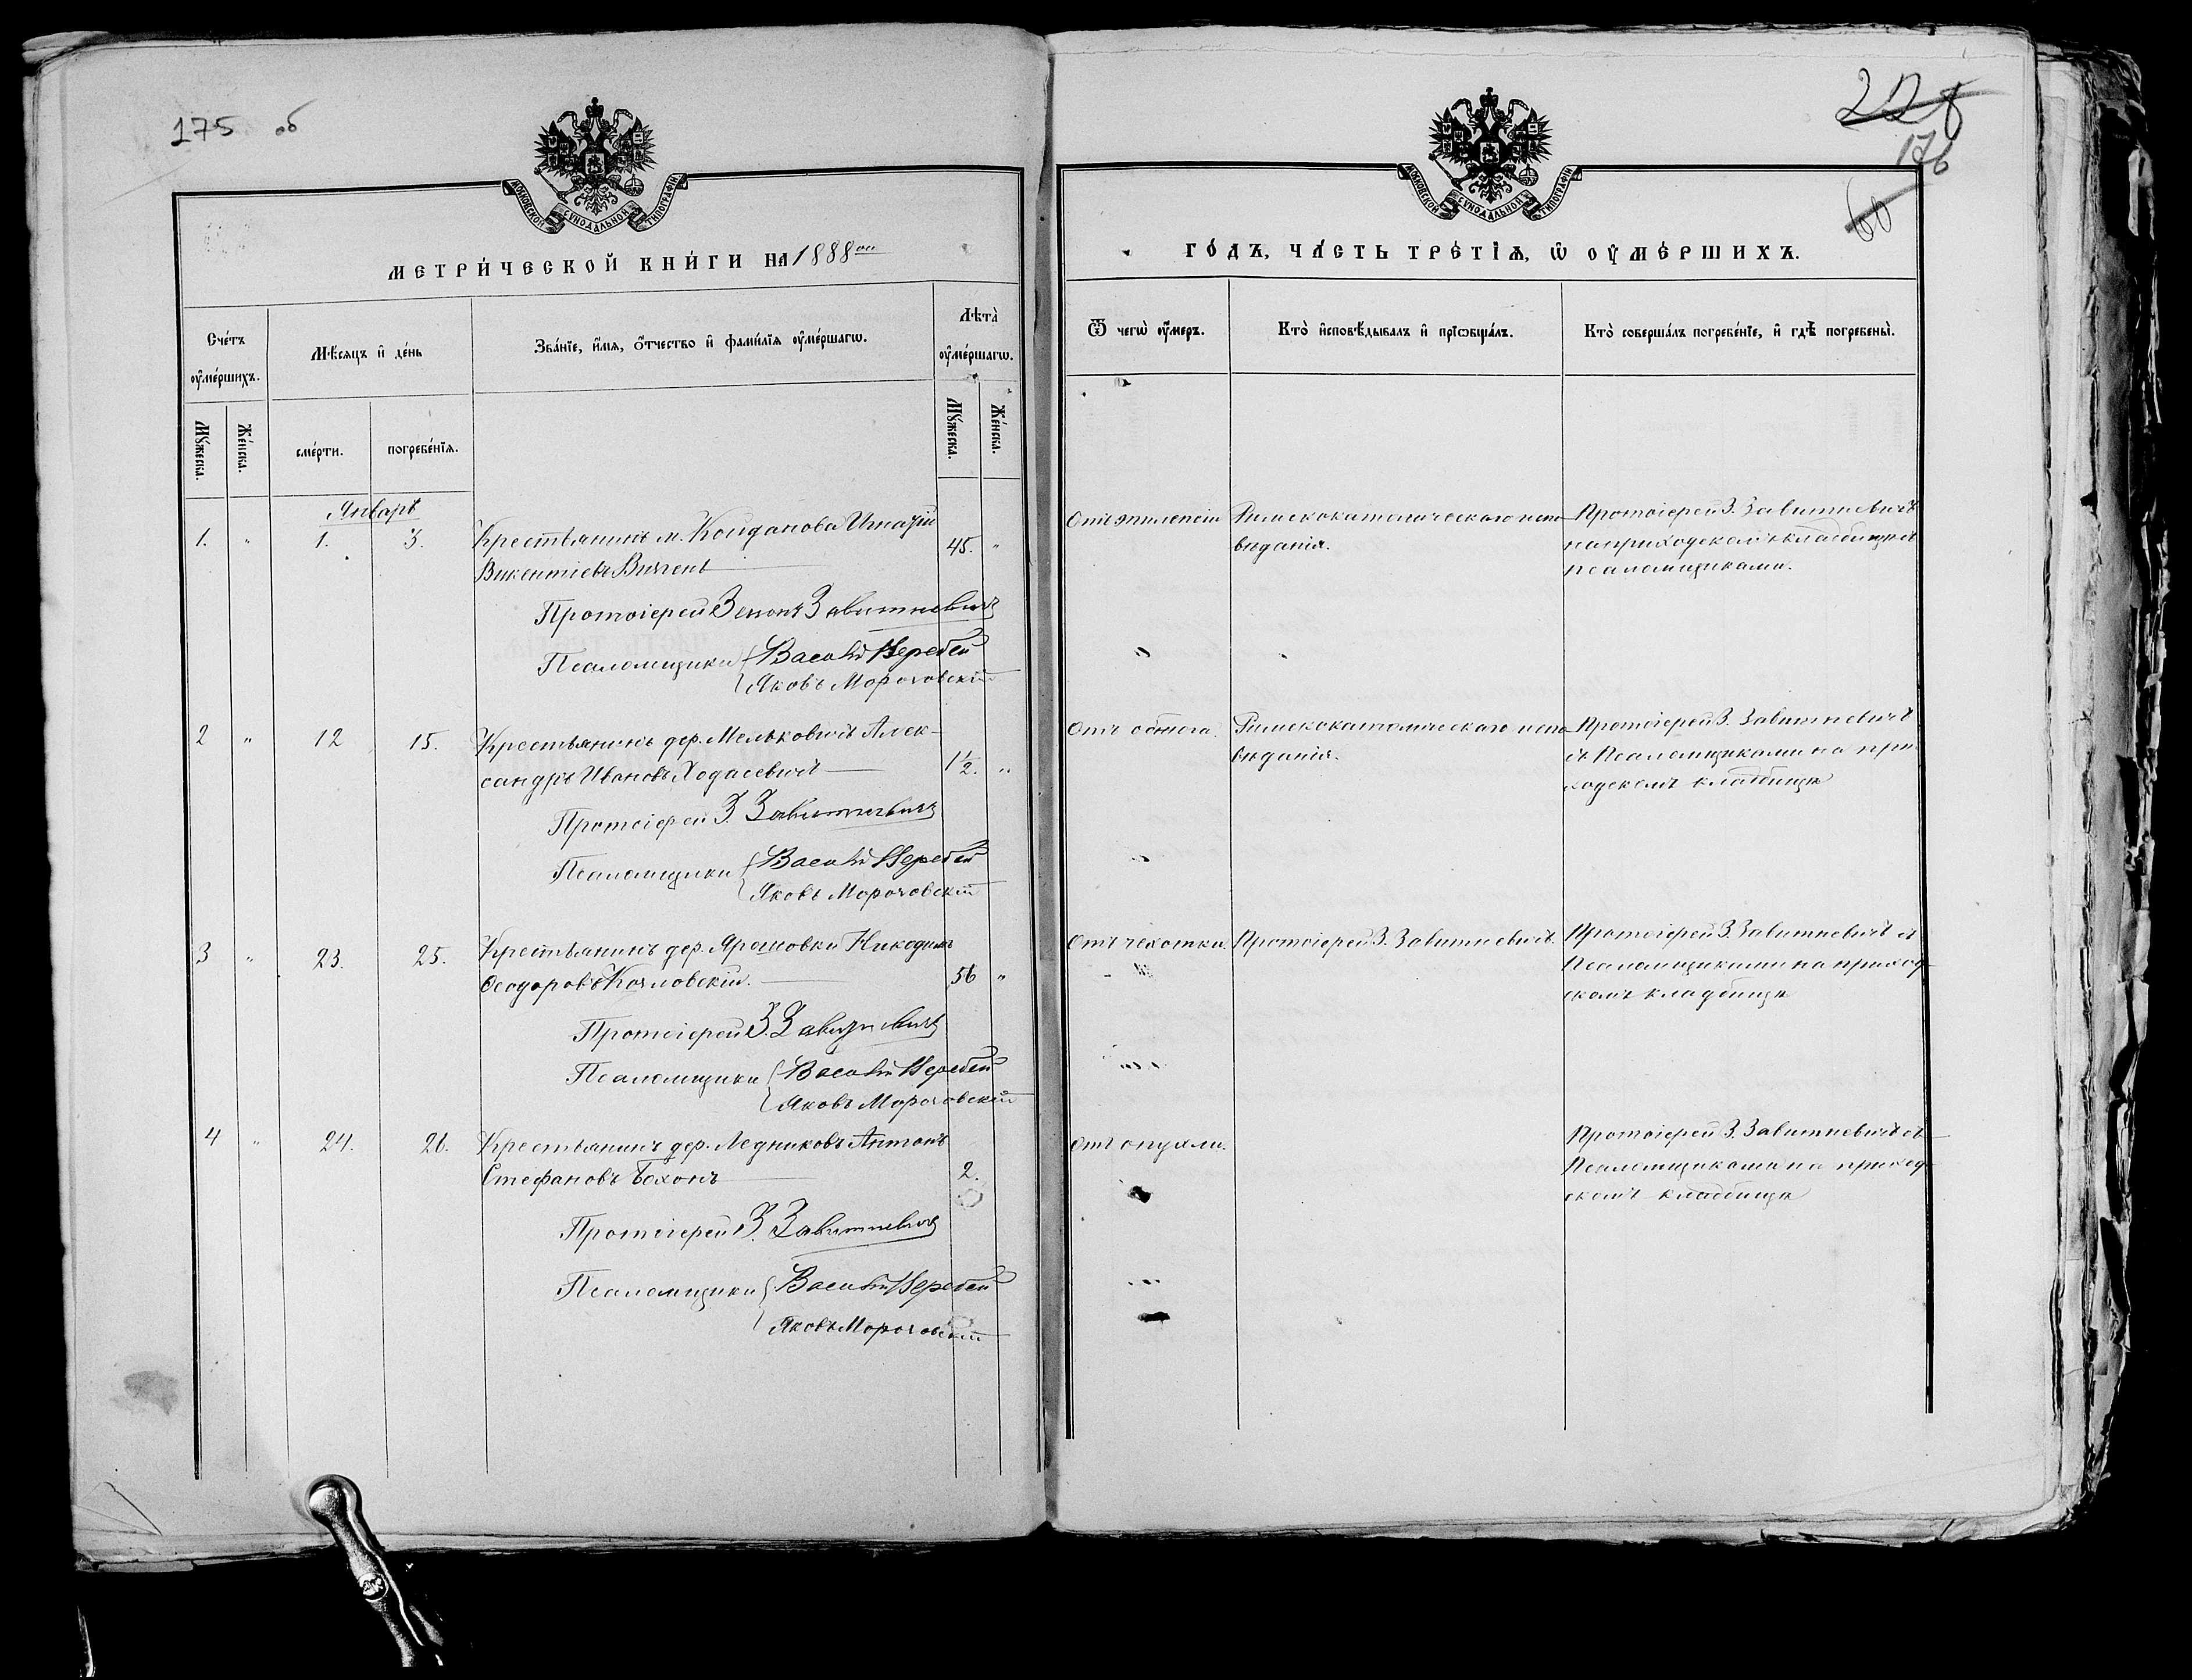 175 об
МОСКОВСКОЙ СУНОДАЛЬНОЙ ТИПОГРАФІИ
МЕТРИ́ЧЕСКОЙ КНИ́ГИ НА 1888 ой
Сче́тъ ᲂу҆ме́ршихъ.
Мѣ́сяцъ и҆ де́нь
Зва́нїе, и҆́мѧ, ѻ҆́тчество и҆ фами́лїѧ ᲂу҆ме́ршагѡ.
Лѣта̀ ᲂу҆ме́ршагѡ.
Мꙋ́жеска.
Же́нска.
сме́рти.
погребе́нїѧ.
Мꙋ́жеска.
Же́нска.
Январь
1. " 1. 3. Крестьянинъ м. Койданова Игнатій
Викентіевъ 45. "
Протоіерей Зенонъ Завитневичъ
Псаломщики Василій Неребей
Яковъ Морочовскій
2 " 12 15. Крестьянинъ дер. Мельковичъ Алек-
сандръ Ивановъ Ходасевичъ 1 1/2. "
Протоіерей З. Завитневичъ
Псаломщики Василій Неребей
Яковъ Морочовскій
3 " 23. 25. Крестьянинъ дер. Ярошовки Никодимъ
Ѳеодоровъ Козловскій. 56 "
Протоіерей З. Завитневичъ
Псаломщики Василій Неребей
Яковъ Морочовскій
4 " 24. 26. Крестьянинъ дер. Ледниковъ Антонъ
Стефановъ Бохонъ 2.
Протоіерей З. Завитневичъ
Псаломщики Василій Неребей
Яковъ Морочовскій
228
176
60
МОСКОВСКОЙ СУНОДАЛЬНОЙ ТИПОГРАФІИ
ГО́ДЪ, ЧА́СТЬ ТРЕ́ТЇѦ, Ѡ҆ ОУ҆МЕ́РШИХЪ.
Ѿ чегѡ̀ ᲂу҆́меръ.
Кто̀ и҆сповѣ́дывалъ и҆ прїѡбща́лъ.
Кто̀ соверша́лъ погребе́нїе, и҆ гдѣ̀ погребены̀.
Отъ эпилепсіи Римскокатолическаго испо- Протоіерей З. Завитневичъ
вѣданія. на приходскомъ кладбищѣ съ
псаломщиками.
Отъ Римскокатолическаго испо- Протоіерей З. Завитневичъ
вѣданія. съ Псаломщиками на при-
ходскомъ кладбищѣ
Отъ чахотки. Протоіерей З. Завитневичъ. Протоіерей З. Завитневичъ съ
Псаломщиками на приход-
скомъ кладбищѣ
Отъ опухли. Протоіерей З. Завитневичъ съ
Псаломщиками на приход-
скомъ кладбищѣ